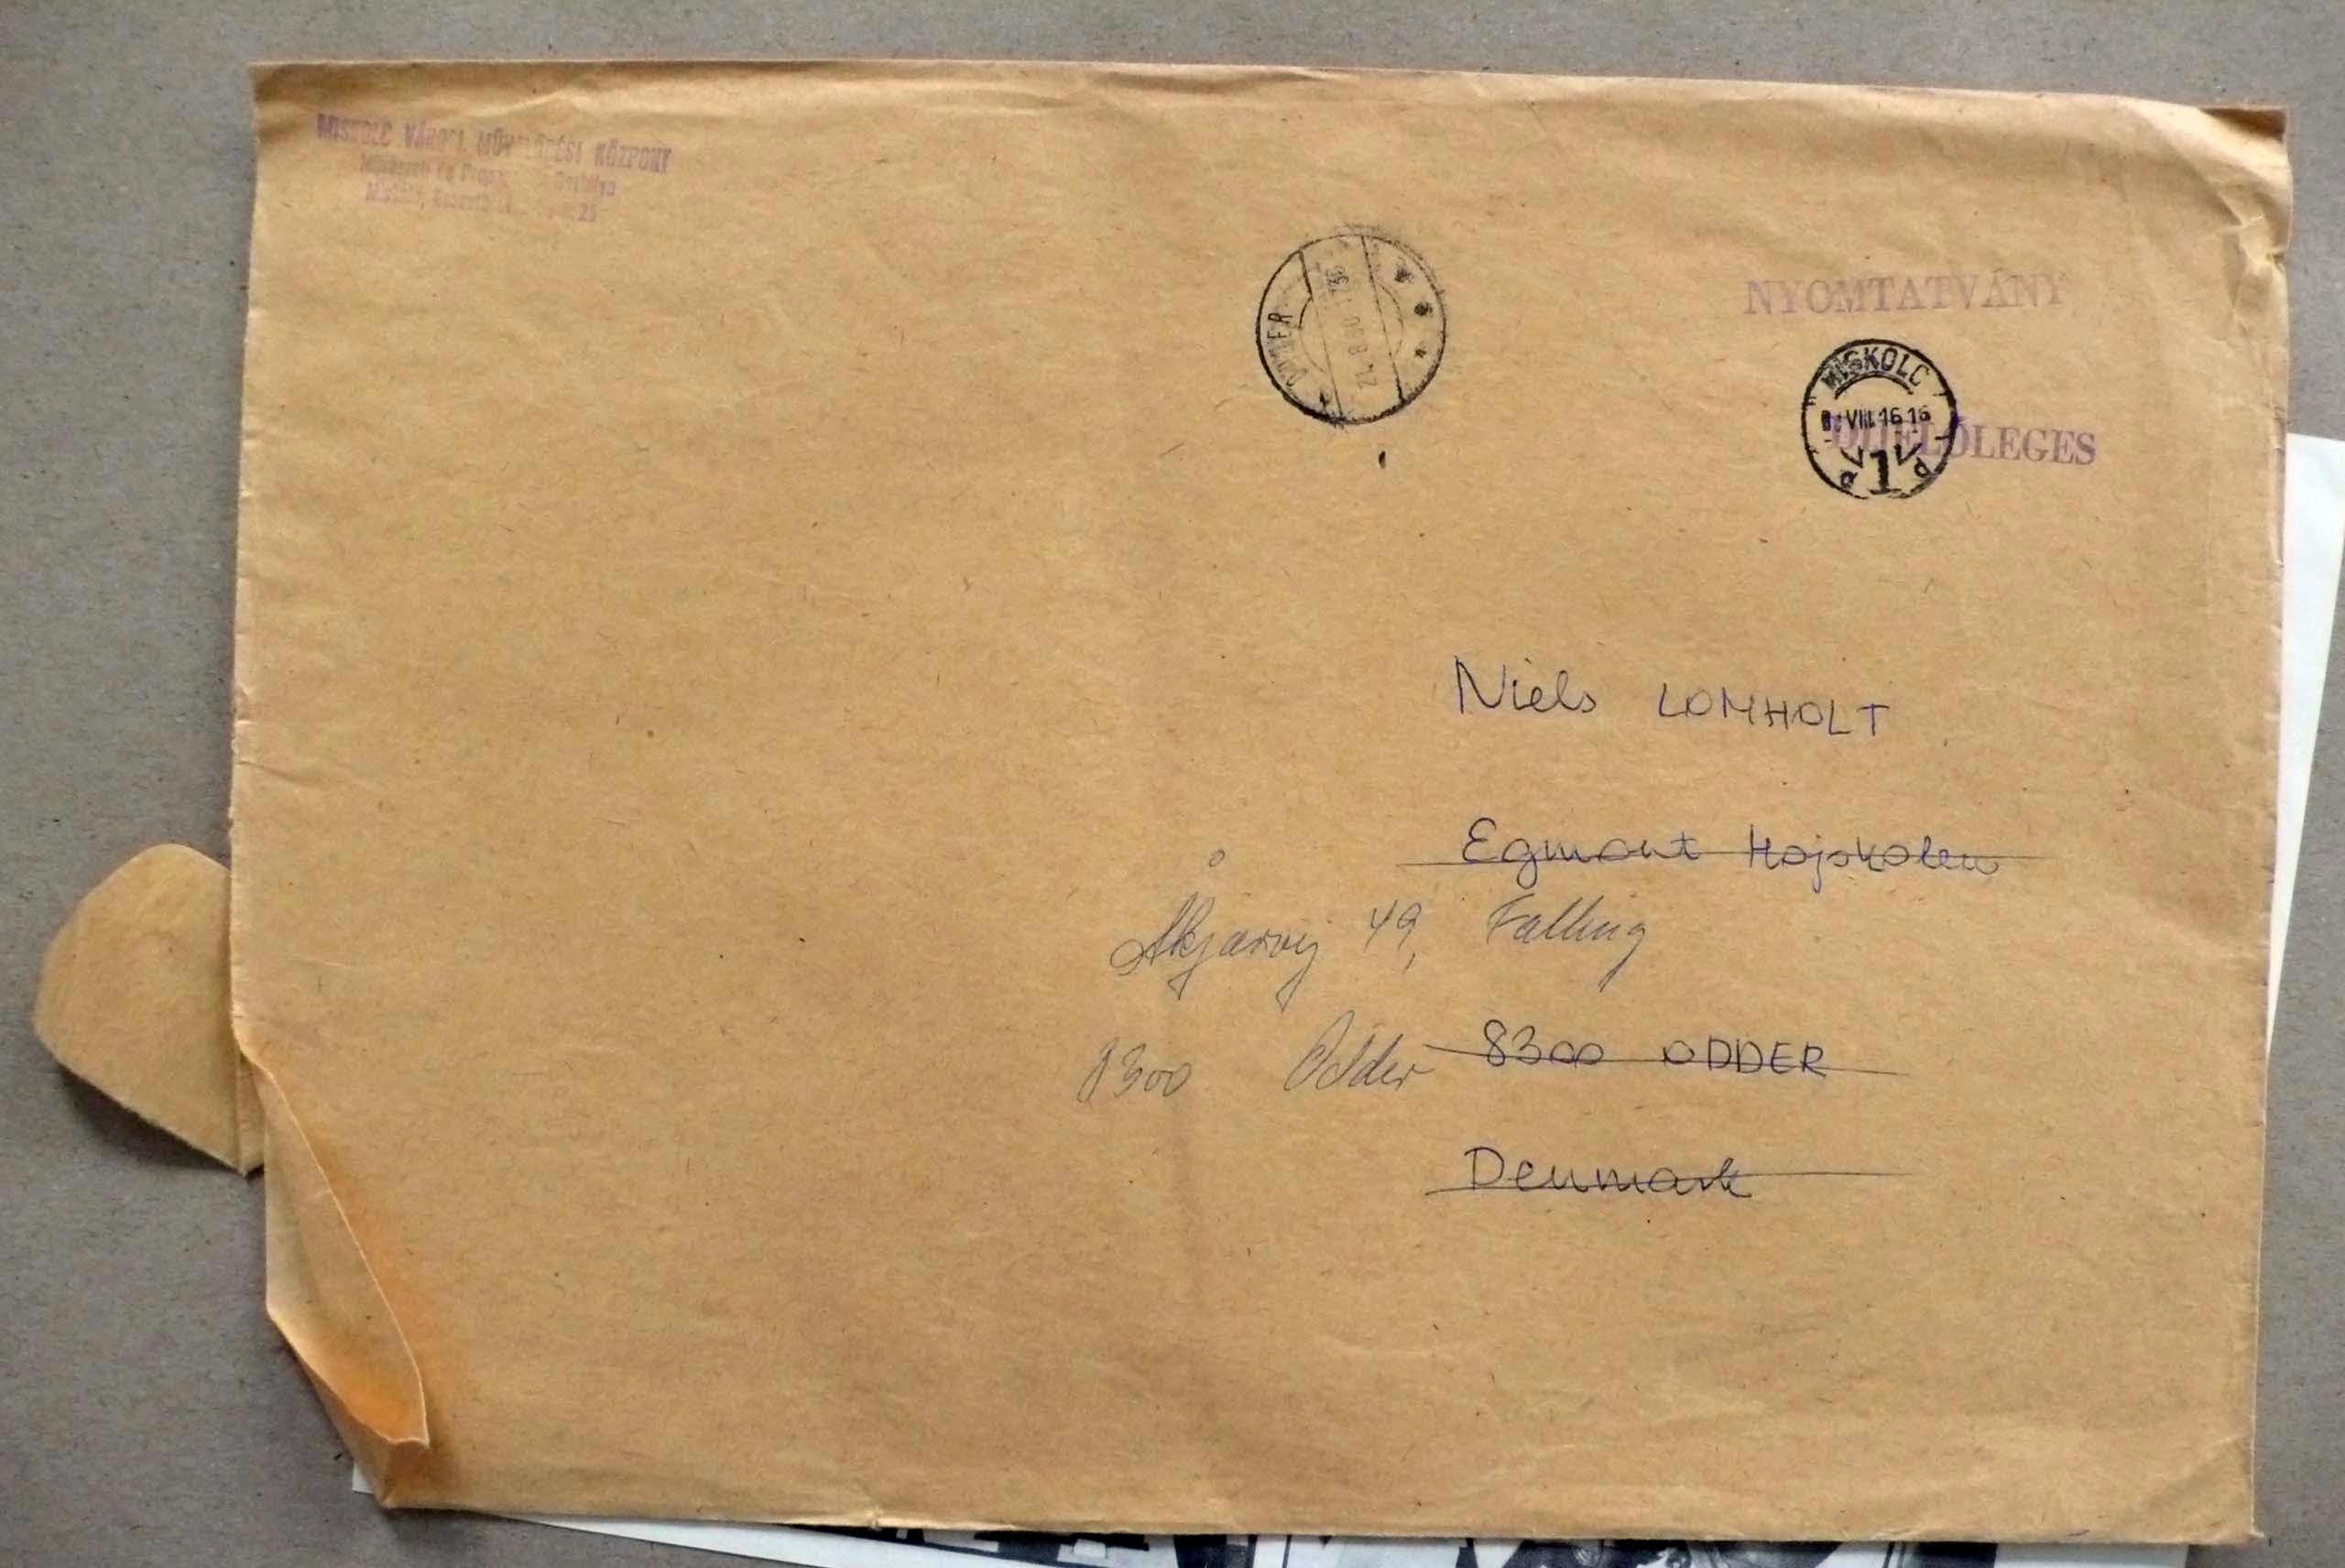 MISKOLC VÁROSI MŰVELŐDÉSI KÖZPONT
Miskolc, 25
ODDER
21. 8.80
NYOMTATVÁNY
MISKOLC
VIII.16 16
DÍJELŐLEGES
d 1 d
Niels LOMHOLT
Egmont Hojskolen
Åkjærvej 49, Falling
8300 Odder
8300 ODDER
Denmark